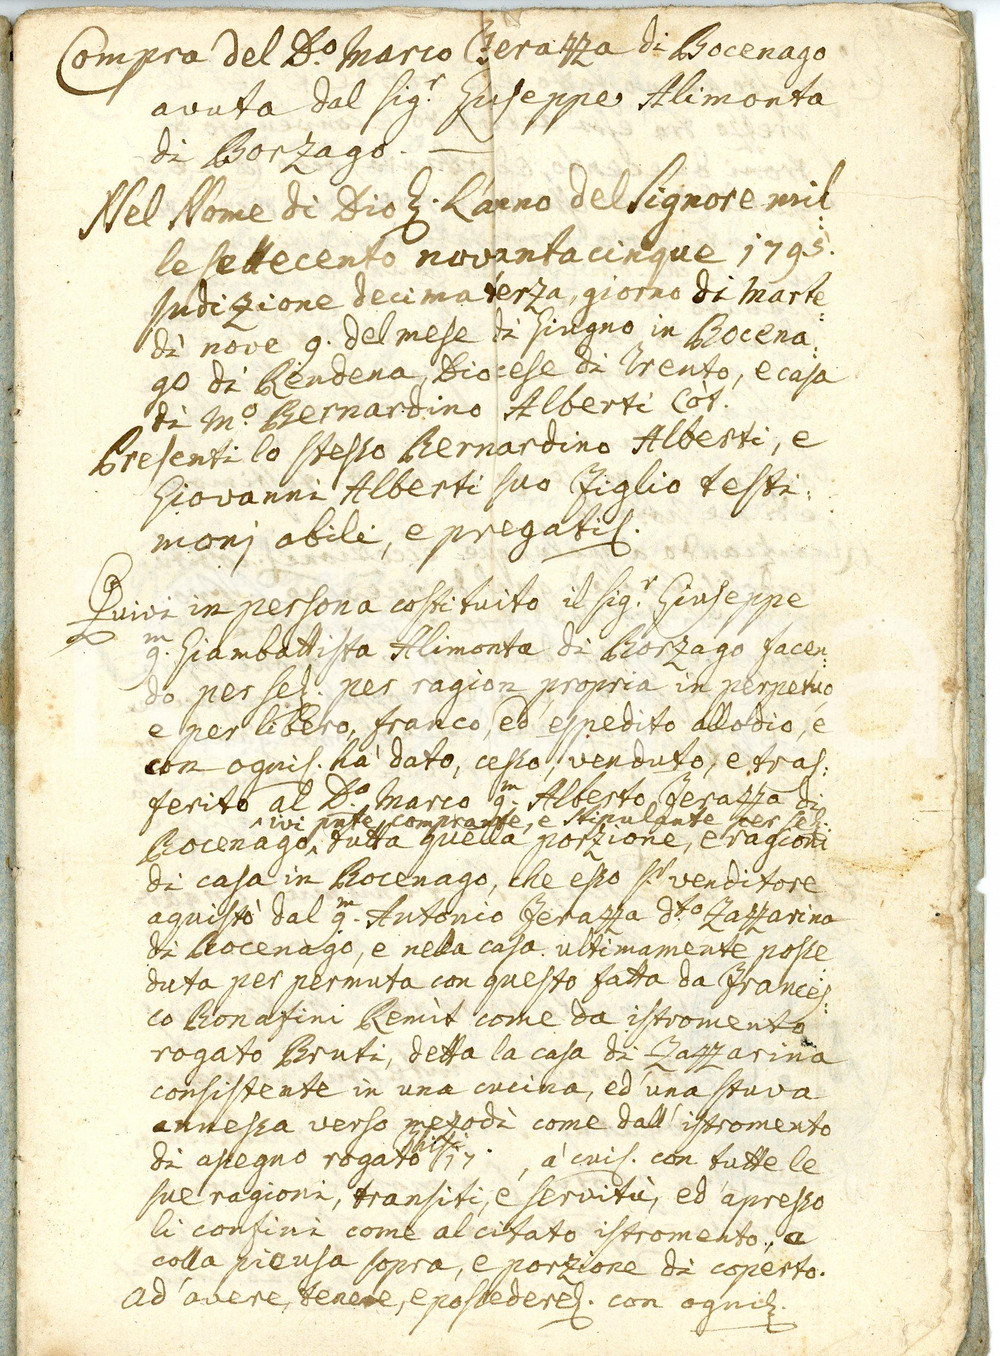 Compra del D.o Marco Ferazza di Bocenago
avuta dal Sig.r Giuseppe Alimonta
di Borzago. —
Nel Nome di Dio &. L'anno del Signore mil:
le settecento novantacinque 1795.
Indizzione decimaterza, giorno di Marte:
dì nove 9. del mese di Giugno in Bocena:
go di Rendena, Diocese di Trento, e casa
di M.o Bernardino Alberti Còt.
Presenti lo stesso Bernardino Alberti, e
Giovanni Alberti suo Figlio testi:
monj abili, e pregati &.
Quivi in persona costituito il Sig.r Giuseppe
q.m Giambattista Alimonta di Borzago facen:
do per se &. per ragion propria in perpetuo,
e per libero, franco, ed espedito allodio, e
con ogni &. hà dato, cesso, venduto, e tras:
ferito al D.o Marco q.m Alberto Ferazza di
ivi pnte, comprante, e stipulante per se &.
Bocenago, tutta quella porzione, e ragioni
di casa in Bocenago, che esso S.r venditore
aquistò dal q.m Antonio Ferazza d.to Zazzarina
di Bocenago, e nella casa ultimamente posse:
duta per permuta con questo fatta da Frances:
co Bonafini Remìt come da istromento
rogato Bruti, detta la casa di Zazzarina
consistente in una cucina, ed una stuva
annessa verso mezodì come dall' istromento
di asegno rogato 17 . , à cui &. con tutte le
sue ragioni, transiti, e servitù, ed apresso
li confini come al citato istromento, e
colla pieusa sopra, e porzione di coperto.
Ad avere, tenere, e possedere &. con ogni &.